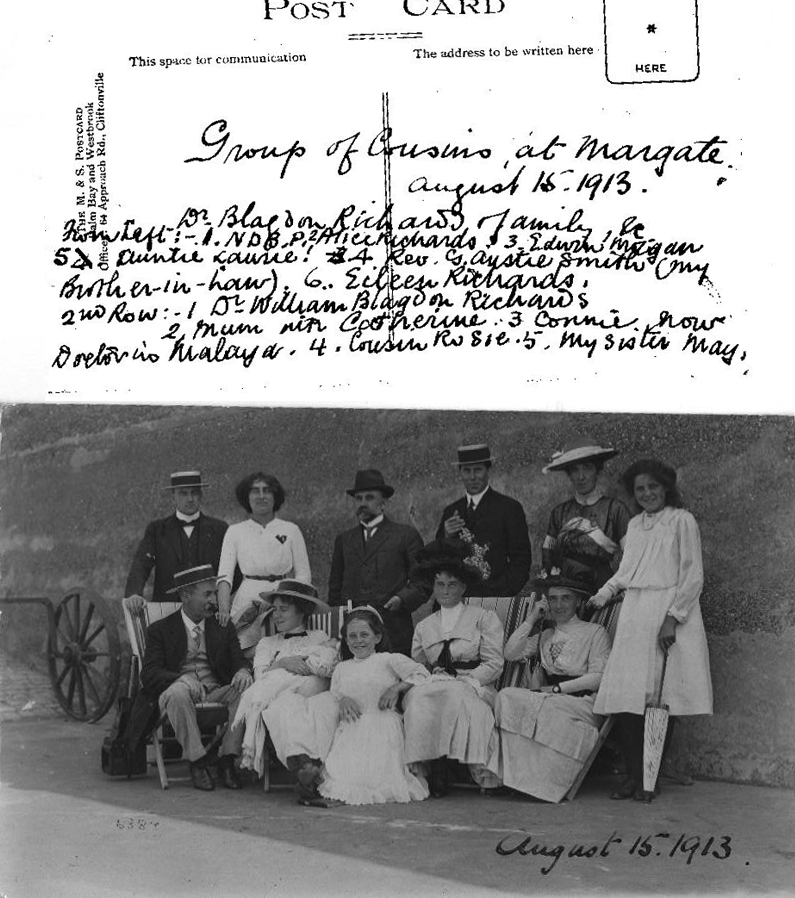 POST CARD
This space for communication
The address to be written here
*
HERE
THE M. & S. POSTCARD
Palm Bay and Westbrook
Offices, 64 Approach Rd., Cliftonville
Group of Cousins, at Margate.
August 15. 1913.
Dr. Blagdon Richards family, &c
From Left:- 1. N.D.B.P. 2 Alice Richards. 3. Edwin Morgan
5 Auntie Laurie! 4 Rev. G. Austie Smith (my
Brother-in-Law). 6. Eileen Richards.
2nd Row:- 1 Dr. William Blagdon Richards
2, Mum with Catherine. 3 Connie. Now
Doctor in Malaya. 4. Cousin Rosie. 5. My Sister May.
6384
August 15. 1913.